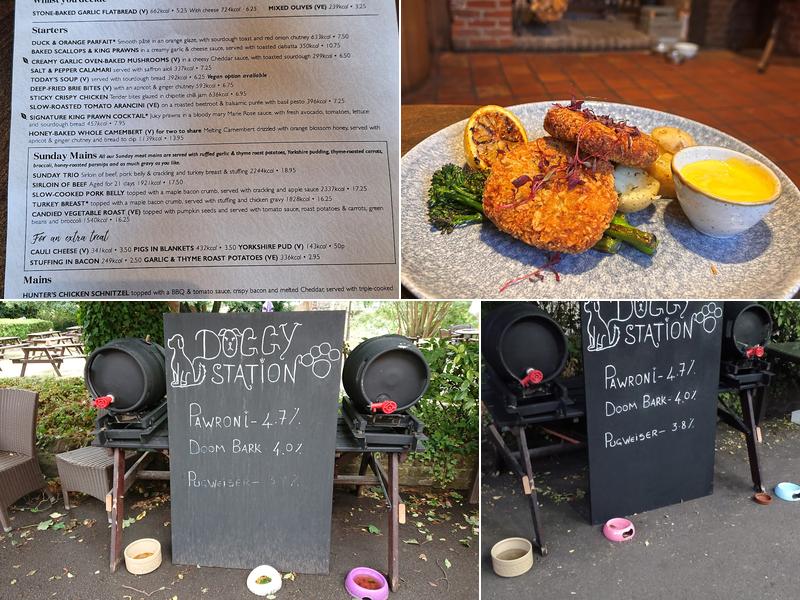 Whilst you decide
STONE-BAKED GARLIC FLATBREAD (V) 662kcal • 5.25 With cheese 724kcal • 6.25 MIXED OLIVES (VE) 239kcal • 3.25
Starters
DUCK & ORANGE PARFAIT* Smooth pâté in an orange glaze, with sourdough toast and red onion chutney 633kcal • 7.50
BAKED SCALLOPS & KING PRAWNS in a creamy garlic & cheese sauce, served with toasted ciabatta 350kcal • 10.75
CREAMY GARLIC OVEN-BAKED MUSHROOMS (V) in a cheesy Cheddar sauce, with toasted sourdough 299kcal • 6.50
SALT & PEPPER CALAMARI served with saffron aioli 337kcal • 7.25
TODAY'S SOUP (V) served with sourdough bread 392kcal • 6.25 Vegan option available
DEEP-FRIED BRIE BITES (V) with an apricot & ginger chutney 593kcal • 6.75
STICKY CRISPY CHICKEN Tender bites glazed in chipotle chilli jam 636kcal • 6.95
SLOW-ROASTED TOMATO ARANCINI (VE) on a roasted beetroot & balsamic purée with basil pesto 396kcal • 7.25
SIGNATURE KING PRAWN COCKTAIL* Juicy prawns in a bloody mary Marie Rose sauce, with fresh avocado, tomatoes, lettuce
and sourdough bread 457kcal • 7.95
HONEY-BAKED WHOLE CAMEMBERT (V) for two to share Melting Camembert drizzled with orange blossom honey, served with
apricot & ginger chutney and bread to dip 1139kcal • 13.95
Sunday Mains All our Sunday meat mains are served with ruffled garlic & thyme roast potatoes, Yorkshire pudding, thyme-roasted carrots,
broccoli, honey-roasted parsnips and as much gravy as you like.
SUNDAY TRIO Sirloin of beef, pork belly & crackling and turkey breast & stuffing 2244kcal • 18.95
SIRLOIN OF BEEF Aged for 21 days 1921kcal • 17.50
SLOW-COOKED PORK BELLY topped with a maple bacon crumb, served with crackling and apple sauce 2337kcal • 17.25
TURKEY BREAST* topped with a maple bacon crumb, served with stuffing and chicken gravy 1828kcal • 16.25
CANDIED VEGETABLE ROAST (VE) topped with pumpkin seeds and served with tomato sauce, roast potatoes & carrots, green
beans and broccoli 1540kcal • 16.25
For an extra treat
CAULI CHEESE (V) 341kcal • 3.50 PIGS IN BLANKETS 432kcal • 3.50 YORKSHIRE PUD (V) 143kcal • 50p
STUFFING IN BACON 249kcal • 2.50 GARLIC & THYME ROAST POTATOES (VE) 336kcal • 2.95
Mains
HUNTER'S CHICKEN SCHNITZEL topped with a BBQ & tomato sauce, crispy bacon and melted Cheddar, served with triple-cooked
DOGGY
STATION
PAWRONI - 4.7%
DOOM BARK 4.0%
PUGWEISER -
DOGGY
STATION
PAWRONI - 4.7%
DOOM BARK - 4.0%
PUGWEISER - 3.8%